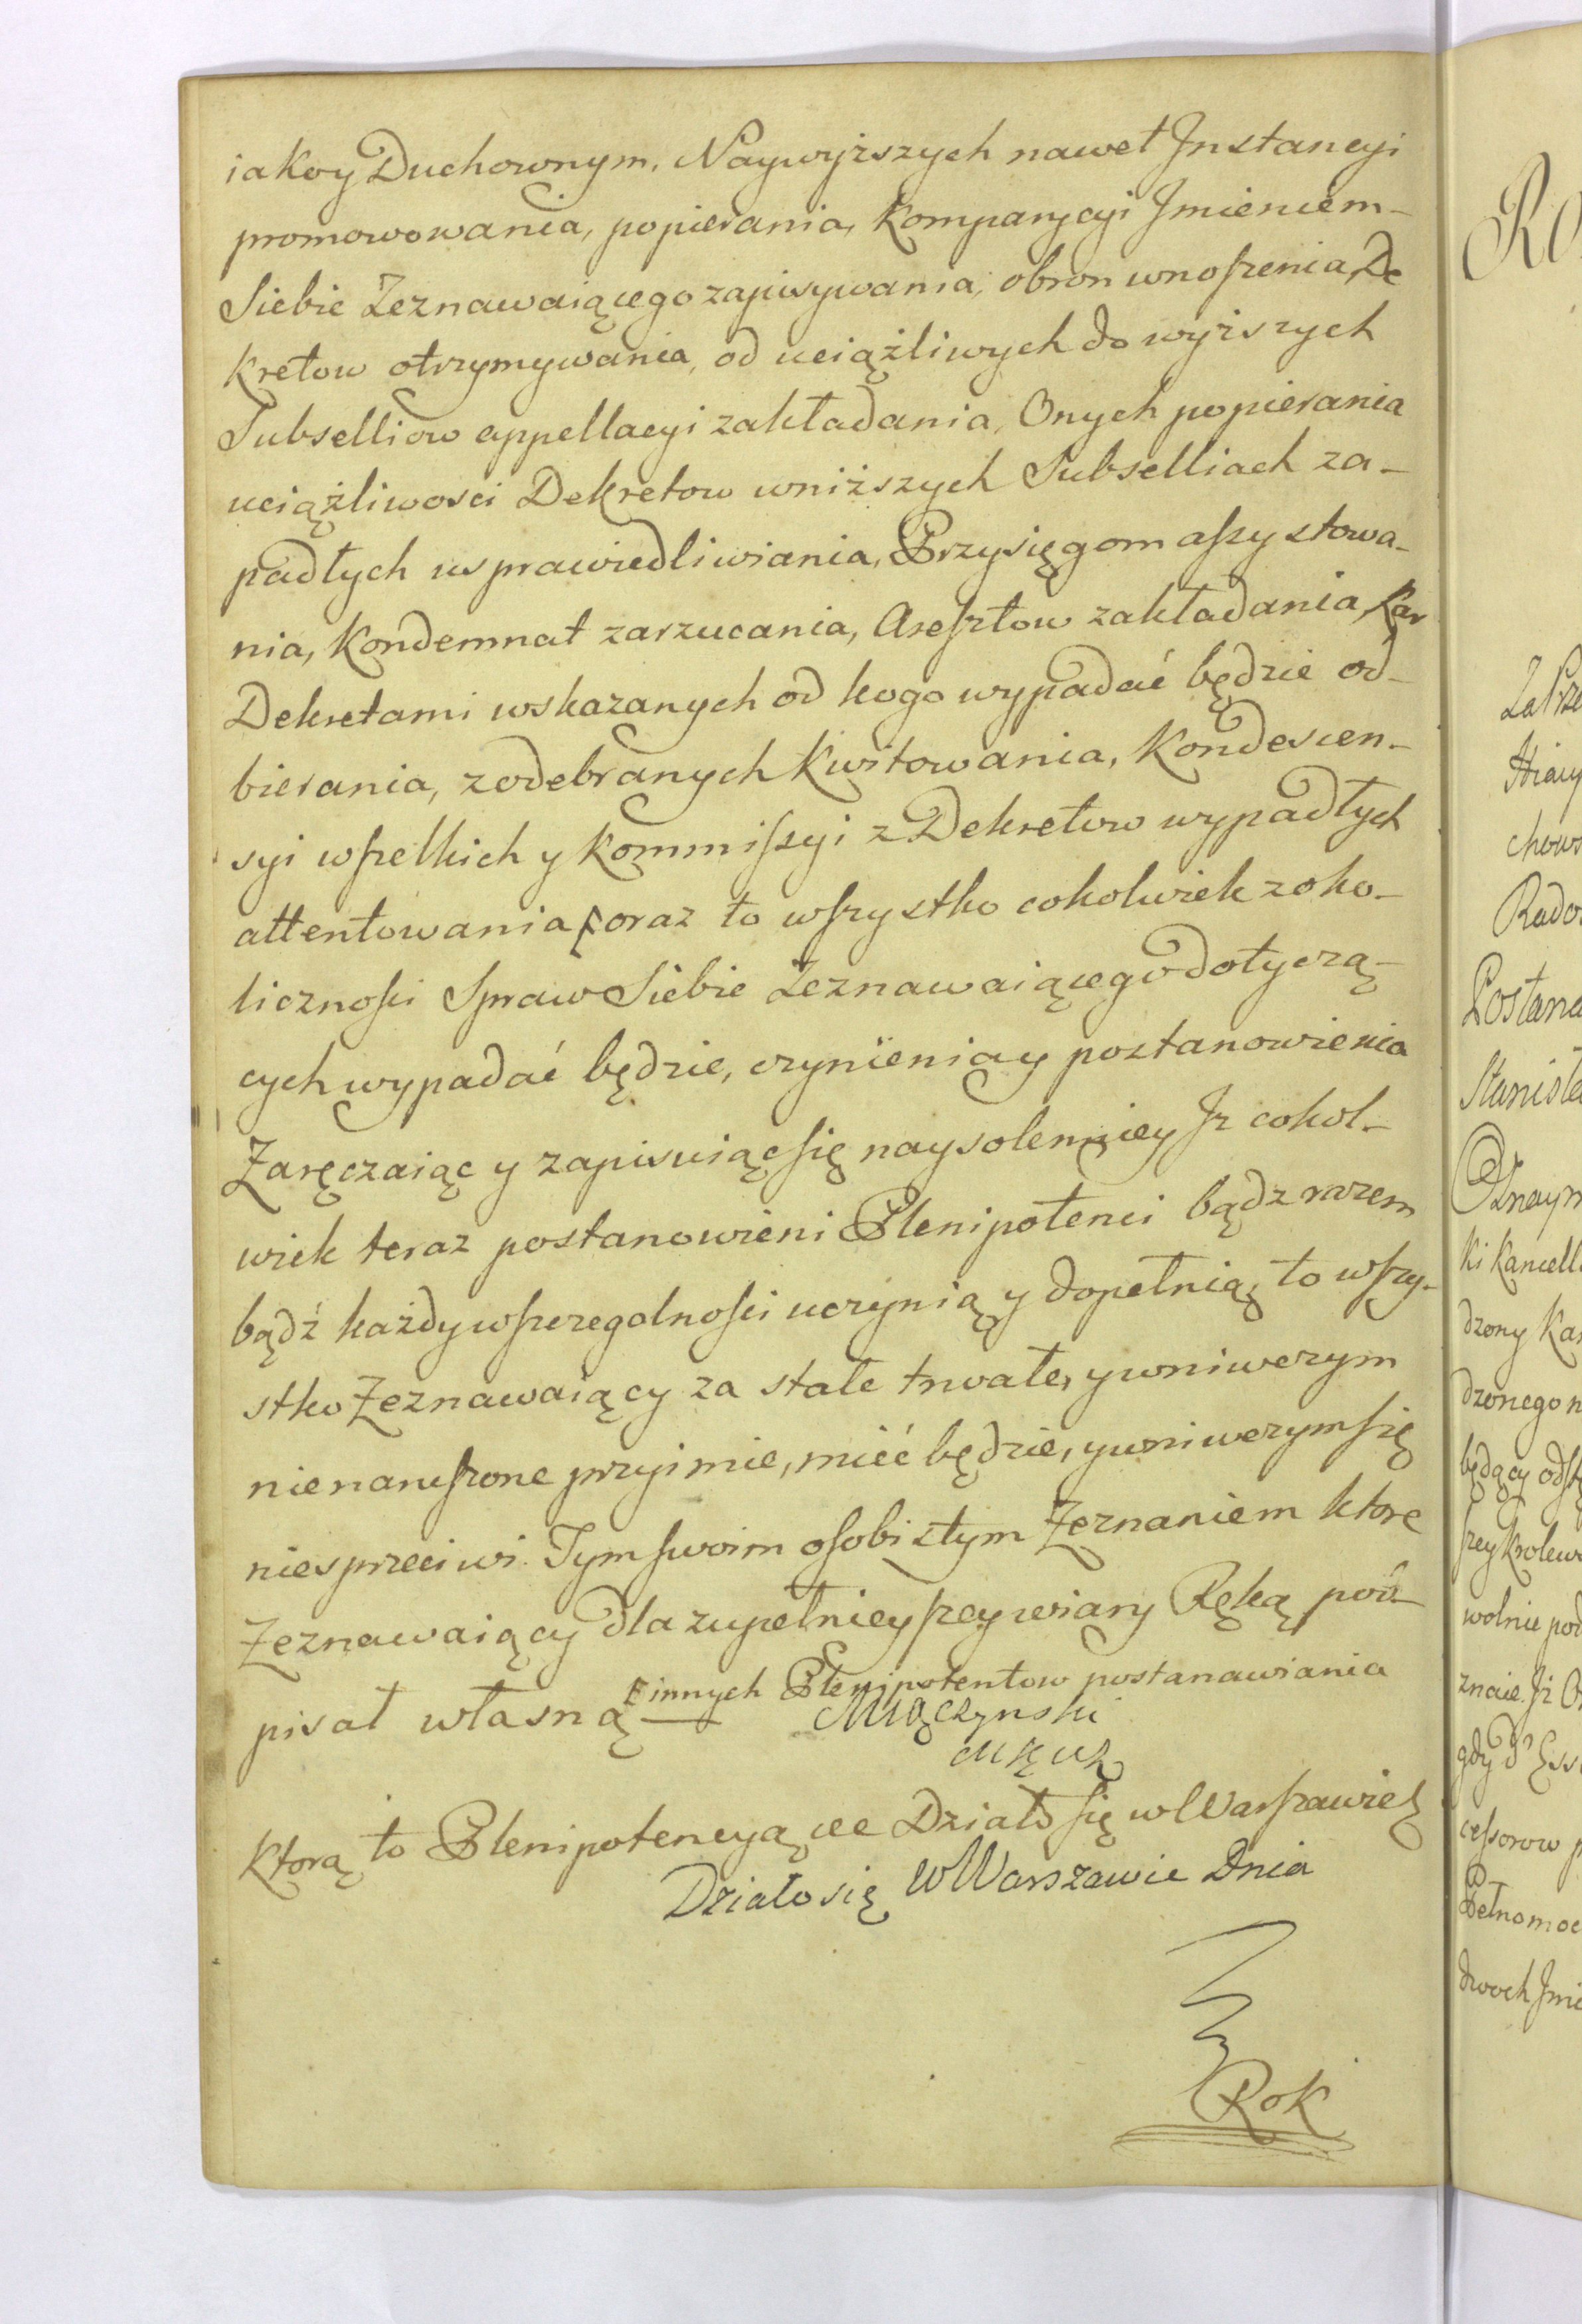 iako y Duchownym, Naywyższych nawet Jnstancyi
promowowania, popierania, Komparycyi Jmieniem
Siebie Zeznawaiącego zapisywania, obron wnoszenia, De
kretow otrzymywania, od uciążliwych do wyższych
Subselliow appellacyi zakładania, Onych popierania
uciążliwosci Dekretow w niższych Subselliach za-
padłych usprawiedliwiania, Przysięgom assystowa-
nia, Kondemnat zarzucania, Aresztow zakładania, Kar
Dekretami wskazanych od kogo wypadać będzie od-
bierania, z odebranych Kwitowania, Kondescen-
syi wszelkich y Kommissyi z Dekretow wypadłych
attentowania, oraz to wszystko cokolwiek z oko-
licznosci Spraw Siebie Zeznawaiącego dotyczą-
cych wypadać będzie, czynienia y postanowienia
Zaręczaiąc y zapisuiąc się naysolenniey Jż cokol-
wiek teraz postanowieni Plenipotenci bądz razem
bądź każdy w szczegolnosci uczynią y dopełnią, to wszy-
stko Zeznawaiący za stałe trwałe, y w niwczym
nienaruszone przyimie, mieć będzie, y w niwczym się
niesprzeciwi. Tym swoim osobistym Zeznaniem ktore
Zeznawaiący dla zupełnieyszey wiary Ręką pod-
pisał własną innych Plenipotentow postanawiania
Miączynski
Ktorą to Plenipotencyą etc Działo się w Warszawie
Działo się w Warszawie Dnia
Rok
RO
Radoś
Postana
Stanisła
Oznaym
ki Kancell
dzony Ka
dzonego n
będący odst
szey Krolews
wolnie pod
znaie Jż O
cessorow p
Pełnomoc
dwoch Jmie